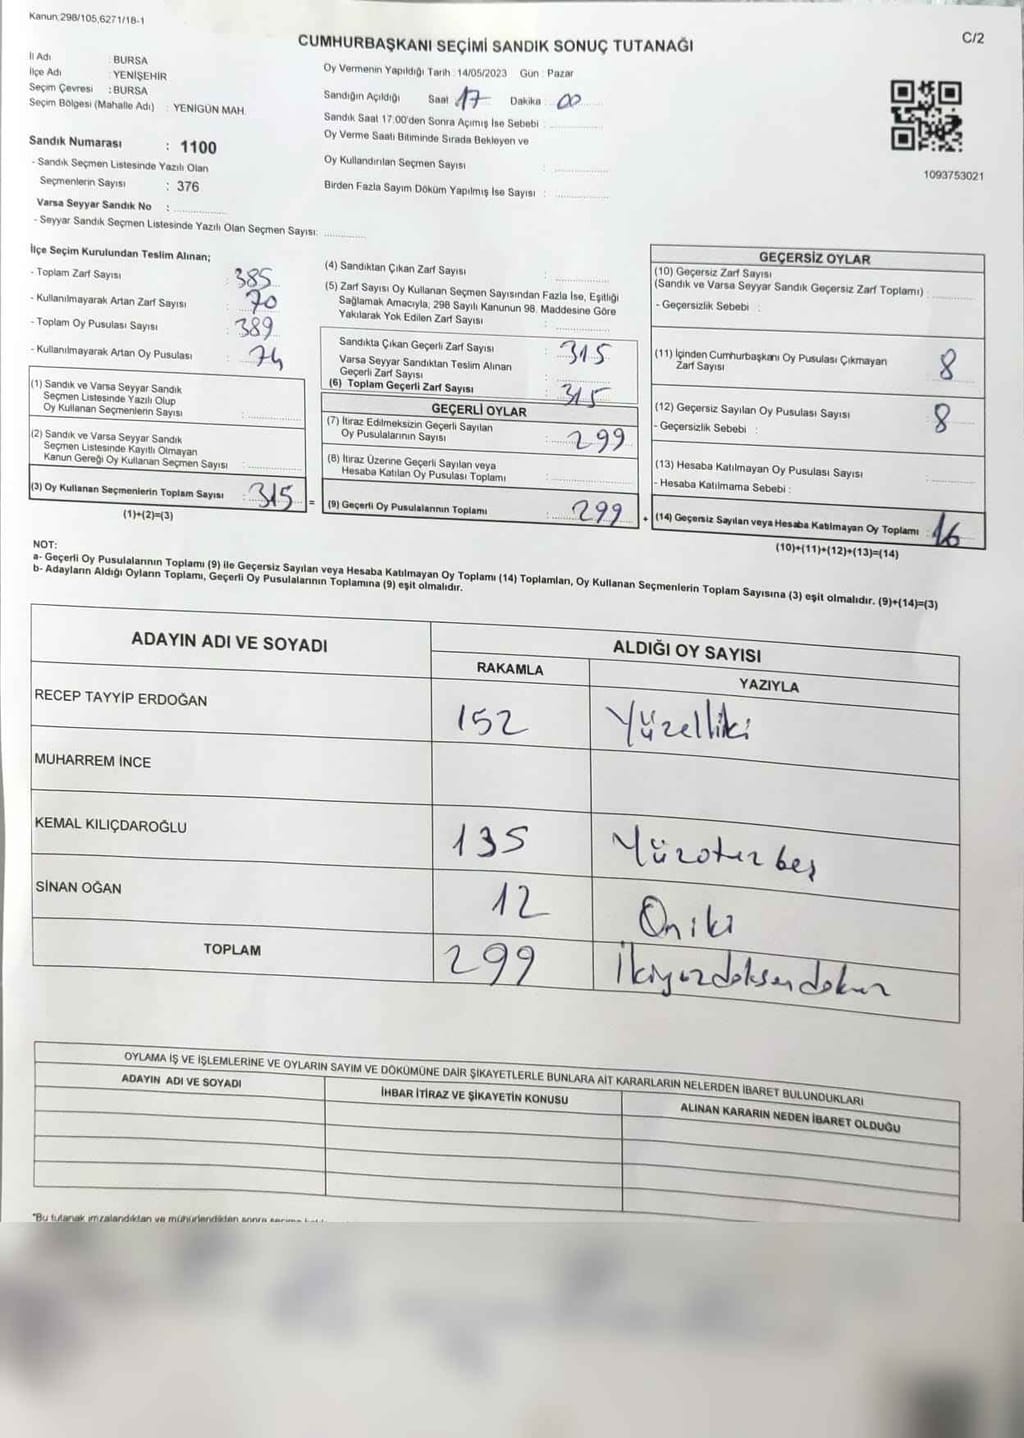 Kanun,298/105,6271/18-1
C/2
CUMHURBAŞKANI SEÇİMİ SANDIK SONUÇ TUTANAĞI
İl Adı : BURSA
İlçe Adı : YENİŞEHİR
Seçim Çevresi : BURSA
Seçim Bölgesi (Mahalle Adı) : YENİGÜN MAH.
Sandık Numarası : 1100
- Sandık Seçmen Listesinde Yazılı Olan
Seçmenlerin Sayısı : 376
Varsa Seyyar Sandık No :
- Seyyar Sandık Seçmen Listesinde Yazılı Olan Seçmen Sayısı:
Oy Vermenin Yapıldığı Tarih : 14/05/2023 Gün : Pazar
Sandığın Açıldığı Saat 17 Dakika 00
Sandık Saat 17:00'den Sonra Açımış İse Sebebi :
Oy Verme Saati Bitiminde Sırada Bekleyen ve
Oy Kullandırılan Seçmen Sayısı :
Birden Fazla Sayım Döküm Yapılmış İse Sayısı :
1093753021
İlçe Seçim Kurulundan Teslim Alınan;
- Toplam Zarf Sayısı : 385
- Kullanılmayarak Artan Zarf Sayısı : 70
- Toplam Oy Pusulası Sayısı : 389
- Kullanılmayarak Artan Oy Pusulası : 74
(1) Sandık ve Varsa Seyyar Sandık
Seçmen Listesinde Yazılı Olup
Oy Kullanan Seçmenlerin Sayısı :
(2) Sandık ve Varsa Seyyar Sandık
Seçmen Listesinde Kayıtlı Olmayan
Kanun Gereği Oy Kullanan Seçmen Sayısı :
(3) Oy Kullanan Seçmenlerin Toplam Sayısı : 315 =
(1)+(2)=(3)
(4) Sandıktan Çıkan Zarf Sayısı :
(5) Zarf Sayısı Oy Kullanan Seçmen Sayısından Fazla İse, Eşitliği
Sağlamak Amacıyla; 298 Sayılı Kanunun 98. Maddesine Göre
Yakılarak Yok Edilen Zarf Sayısı :
Sandıkta Çıkan Geçerli Zarf Sayısı : 315
Varsa Seyyar Sandıktan Teslim Alınan
Geçerli Zarf Sayısı :
(6) Toplam Geçerli Zarf Sayısı : 315
GEÇERLİ OYLAR
(7) İtiraz Edilmeksizin Geçerli Sayılan
Oy Pusulalarının Sayısı : 299
(8) İtiraz Üzerine Geçerli Sayılan veya
Hesaba Katılan Oy Pusulası Toplamı :
(9) Geçerli Oy Pusulalarının Toplamı : 299 +
GEÇERSİZ OYLAR
(10) Geçersiz Zarf Sayısı
(Sandık ve Varsa Seyyar Sandık Geçersiz Zarf Toplamı) :
- Geçersizlik Sebebi :
(11) İçinden Cumhurbaşkanı Oy Pusulası Çıkmayan
Zarf Sayısı : 8
(12) Geçersiz Sayılan Oy Pusulası Sayısı : 8
- Geçersizlik Sebebi :
(13) Hesaba Katılmayan Oy Pusulası Sayısı :
- Hesaba Katılmama Sebebi :
(14) Geçersiz Sayılan veya Hesaba Katılmayan Oy Toplamı : 16
(10)+(11)+(12)+(13)=(14)
NOT:
a- Geçerli Oy Pusulalarının Toplamı (9) ile Geçersiz Sayılan veya Hesaba Katılmayan Oy Toplamı (14) Toplamları, Oy Kullanan Seçmenlerin Toplam Sayısına (3) eşit olmalıdır. (9)+(14)=(3)
b- Adayların Aldığı Oyların Toplamı, Geçerli Oy Pusulalarının Toplamına (9) eşit olmalıdır.
ADAYIN ADI VE SOYADI ALDIĞI OY SAYISI
RAKAMLA YAZIYLA
RECEP TAYYİP ERDOĞAN 152 Yüzelliki
MUHARREM İNCE
KEMAL KILIÇDAROĞLU 135 Yüzotuzbeş
SİNAN OĞAN 12 Oniki
TOPLAM 299 İkiyüzdoksandokuz
OYLAMA İŞ VE İŞLEMLERİNE VE OYLARIN SAYIM VE DÖKÜMÜNE DAİR ŞİKAYETLERLE BUNLARA AİT KARARLARIN NELERDEN İBARET BULUNDUKLARI
ADAYIN ADI VE SOYADI İHBAR İTİRAZ VE ŞİKAYETİN KONUSU ALINAN KARARIN NEDEN İBARET OLDUĞU
"Bu tutanak imzalandıktan ve mühürlendikten sonra